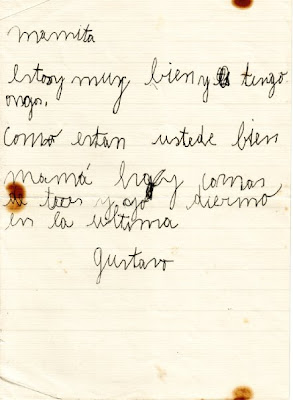 mamita
Estoy muy bien y tengo
ongo.
como estan ustede bien
mamá hay comas
de tees y yo duermo
en la ultima
Gustavo